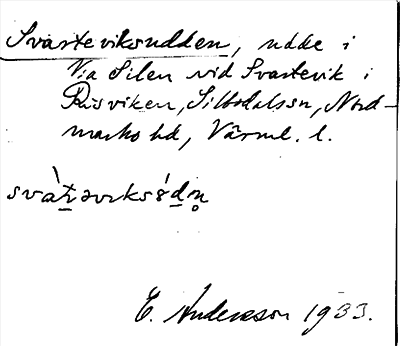 Svarteviksudden, udde i
V:a Silen vid Svartevik i
Risviken, Silbodalssn, Nord-
marks hd, Värml. l.
E. Andersson 1933.